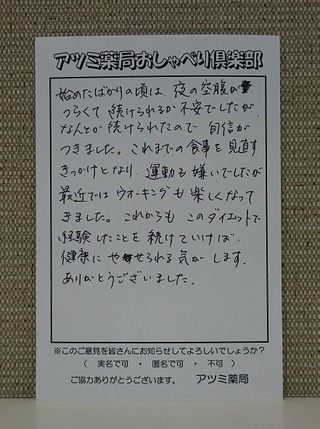 アツミ薬局おしゃべり倶楽部
始めたばかりの頃は、夜の空腹が
つらくて続けられるか不安でしたが
なんとか続けられたので自信が
つきました。これまでの食事を見直す
きっかけとなり、運動も嫌いでしたが
最近ではウオーキングも楽しくなって
きました。これからも このダイエットで
経験したことを続けていけば、
健康に やせられる気がします。
ありがとうございました。
※このご意見を皆さんにお知らせしてよろしいでしょうか？
（ 実名で可 ・ 匿名で可 ・ 不可 ）
ご協力ありがとうございます。 アツミ薬局